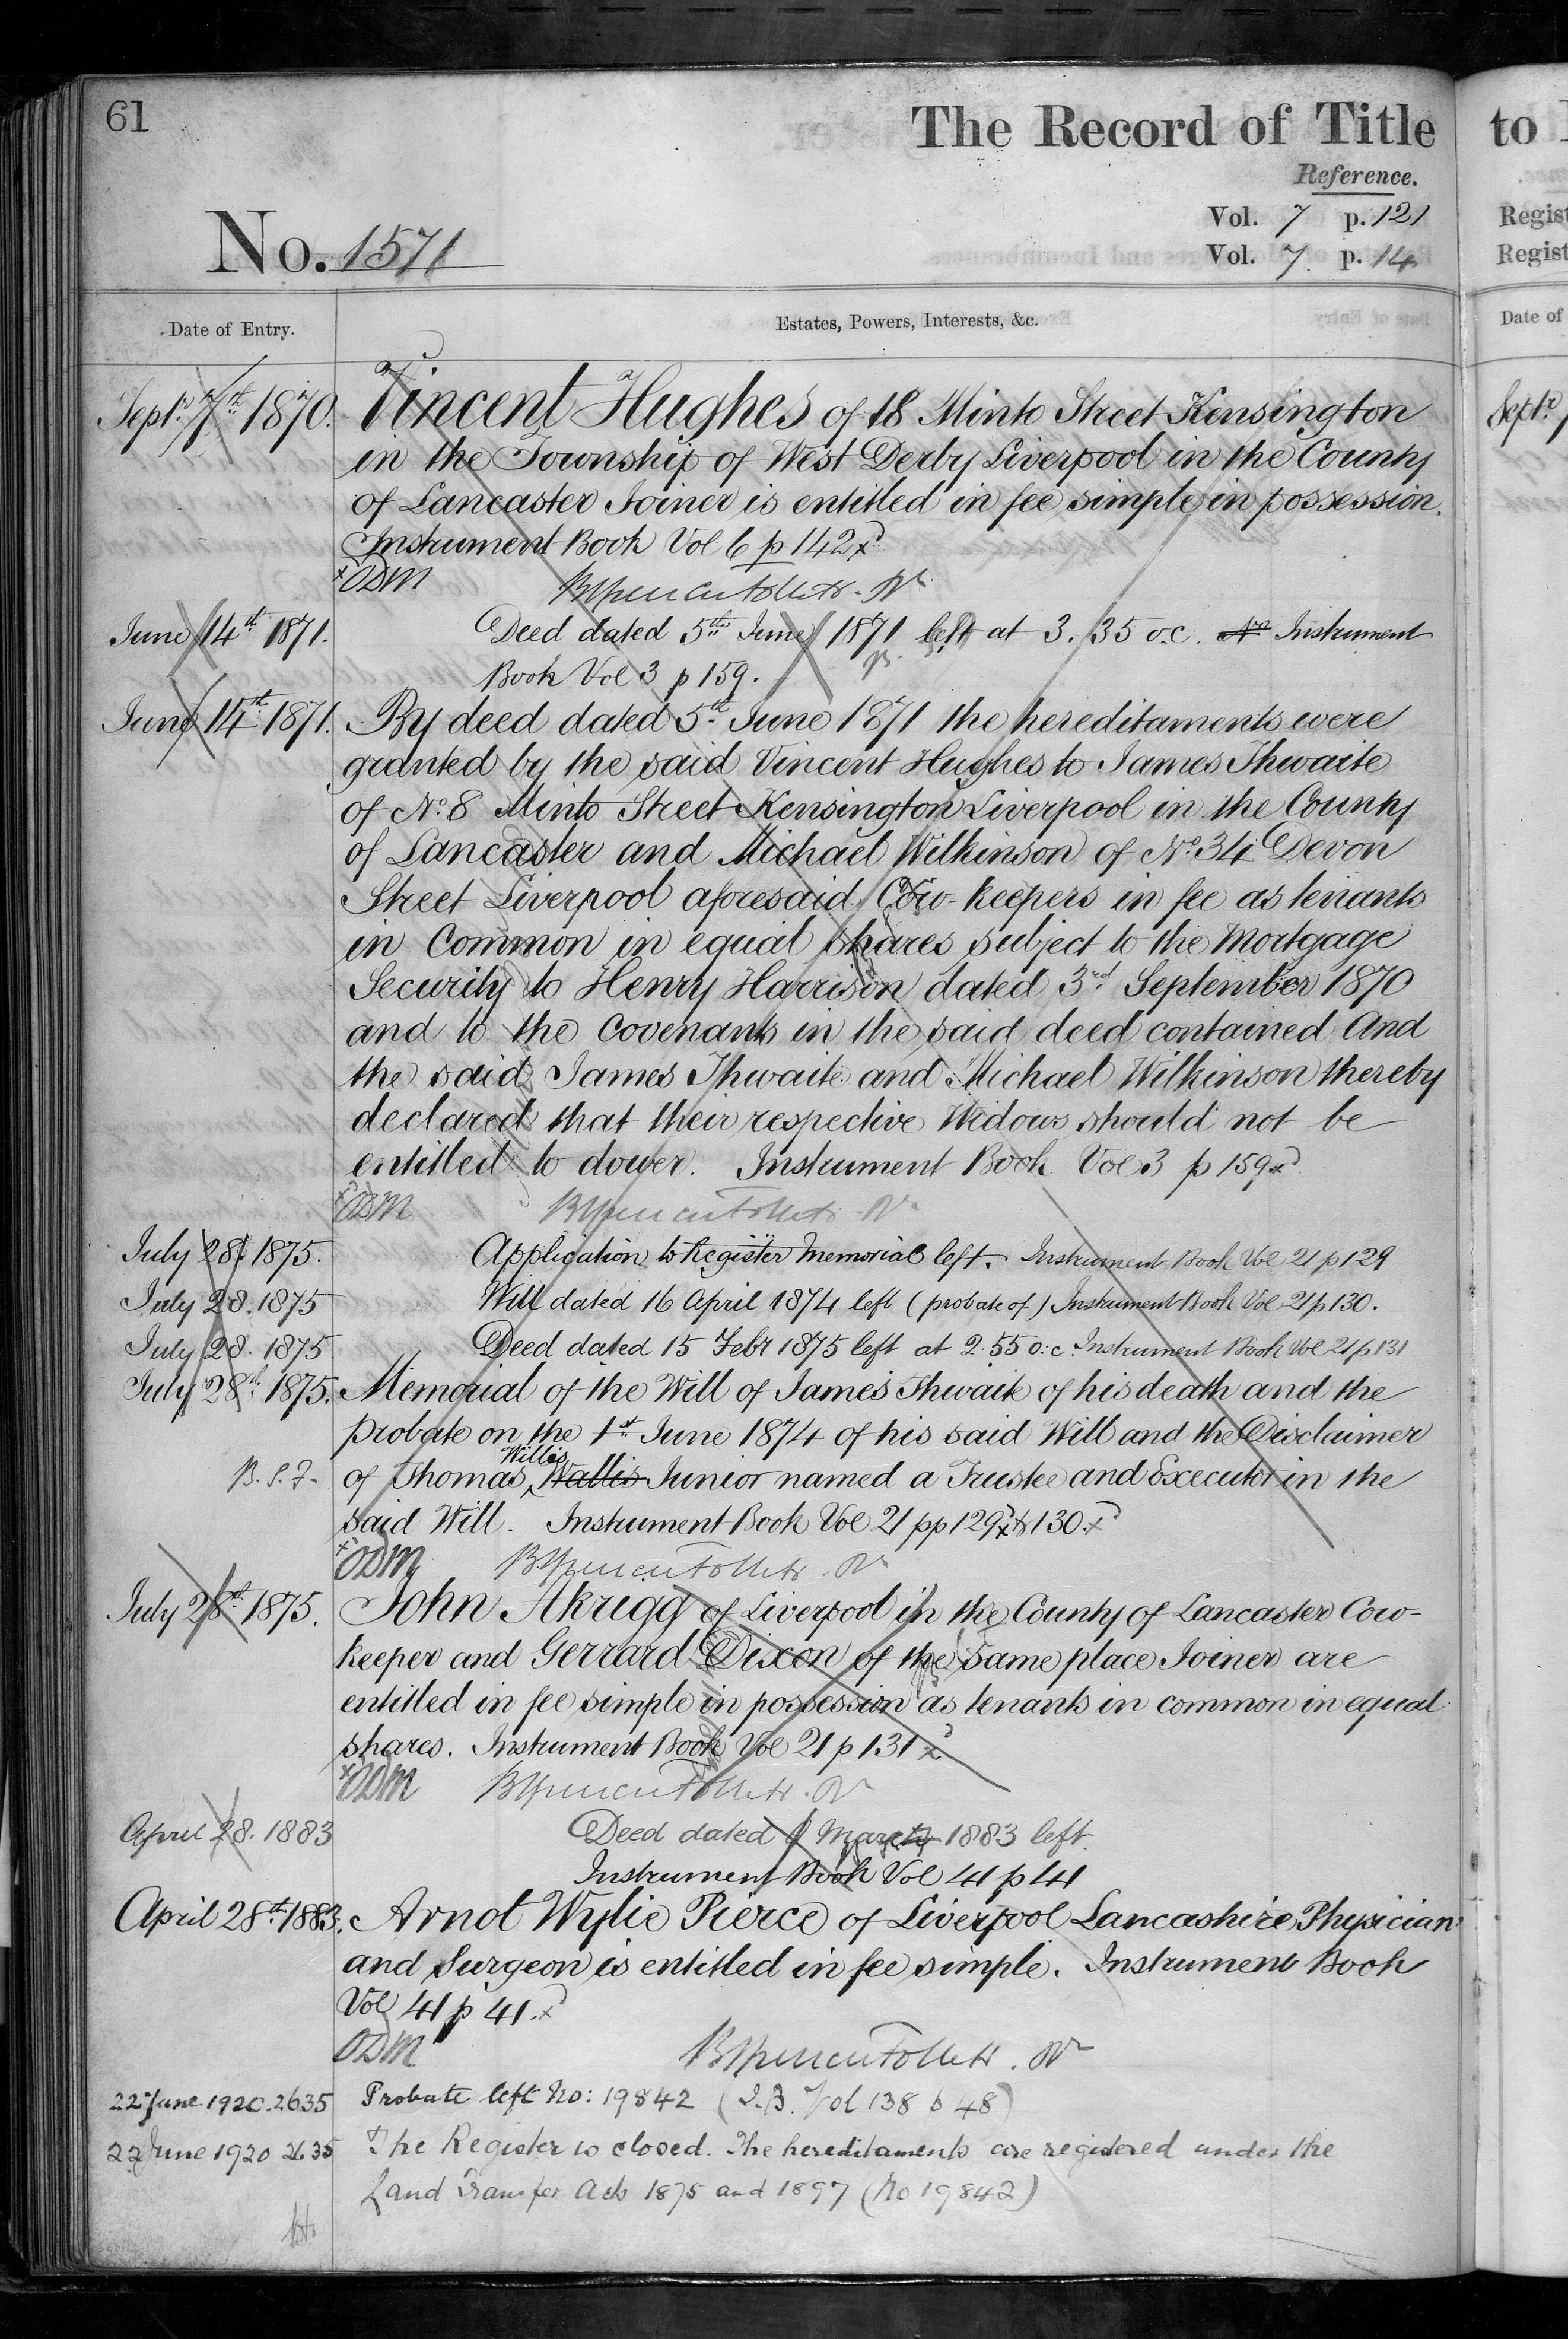 61
The Record of Title
to
Reference.
Vol. 7 p. 121
Regist
No. 1571
Vol. 7. p. 14
Regist
Date of Entry.
Estates, Powers, Interests, &c.
Date of
Septr. 7th 1870. Vincent Hughes of 18 Minto Street Kensington
Septr
in the Township of West Derby Liverpool in the County
of Lancaster Joiner is entitled in fee simple in possession.
Instrument Book Vol. 6 p 142 x
x ODM
June 14th 1871. Deed dated 5th June 1871 left at 3.35 o.c. Instrument
Book Vol 3 p 159.
June 14th 1871. By deed dated 5th June 1871 the hereditaments were
granted by the said Vincent Hughes to James Thwaite
of No. 8 Minto Street Kensington Liverpool in the County
of Lancaster and Michael Wilkinson of No. 34 Devon
Street Liverpool aforesaid Cow-keepers in fee as tenants
in common in equal shares subject to the Mortgage
Security to Henry Harrison dated 3rd September 1870
and to the Covenants in the said deed contained And
the said James Thwaite and Michael Wilkinson thereby
declared that their respective Widows should not be
entitled to dower. Instrument Book Vol 3 p 159 x
x ODM
July 28. 1875. Application to Register Memorial left. Instrument Book Vol 21 p 129
July 28. 1875 Will dated 16 April 1874 left (probate of) Instrument Book Vol 21 p 130.
July 28. 1875 Deed dated 15 Febr 1875 left at 2.55 o.c. Instrument Book Vol 21 p 131
July 28th 1875. Memorial of the Will of James Thwaite of his death and the
probate on the 1st June 1874 of his said Will and the Disclaimer
Willis
B.S.F. of Thomas, Wallis Junior named a Trustee and Executor in the
said Will. Instrument Book Vol 21 pp 129 x & 130. x
x ODM
July 28th 1875. John Akrigg of Liverpool in the County of Lancaster Cow-
keeper and Gerrard Dixon of the same place Joiner are
entitled in fee simple in possession as tenants in common in equal
shares. Instrument Book Vol 21 p 131 x
x ODM
April 28. 1883 Deed dated March 1883 left.
Instrument Book Vol 41 p 41
April 28th 1883. Arnot Wylie Pierce of Liverpool Lancashire, Physician
and Surgeon is entitled in fee simple. Instrument Book
Vol 41 p 41. x
ODM
22 June 1920. 2635 Probate left No: 19842 (I.B. Vol 138 p 48)
22 June 1920 2635 The Register is closed. The hereditaments are registered under the
Land Transfer Acts 1875 and 1897 (No 19842)